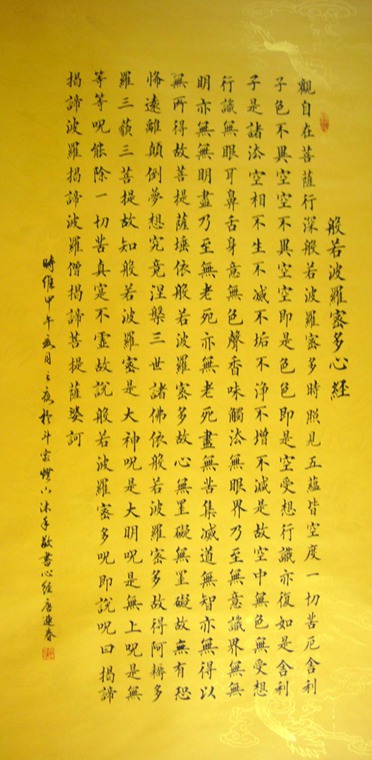 般若波羅密多心經
觀自在菩薩行深般若波羅密多時照見五蘊皆空度一切苦厄舍利
子色不異空空不異空空即是色色即是空受想行識亦復如是舍利
子是諸法空相不生不滅不垢不淨不增不減是故空中無色無受想
行識無眼耳鼻舌身意無色聲香味觸法無眼界乃至無意識界無無
明亦無無明盡乃至無老死亦無老死盡無苦集滅道無智亦無得以
無所得故菩提薩埵依般若波羅密多故心無罣礙無罣礙故無有恐
怖遠離顛倒夢想究竟涅槃三世諸佛依般若波羅密多故得阿耨多
羅三藐三菩提故知般若波羅密是大神咒是大明咒是無上咒是無
等等咒能除一切苦真實不虛故說般若波羅密多咒即說咒曰揭諦
揭諦波羅揭諦波羅僧揭諦菩提薩婆訶
時維甲午月之夜於斗室燈下沐手敬書心經唐迎春